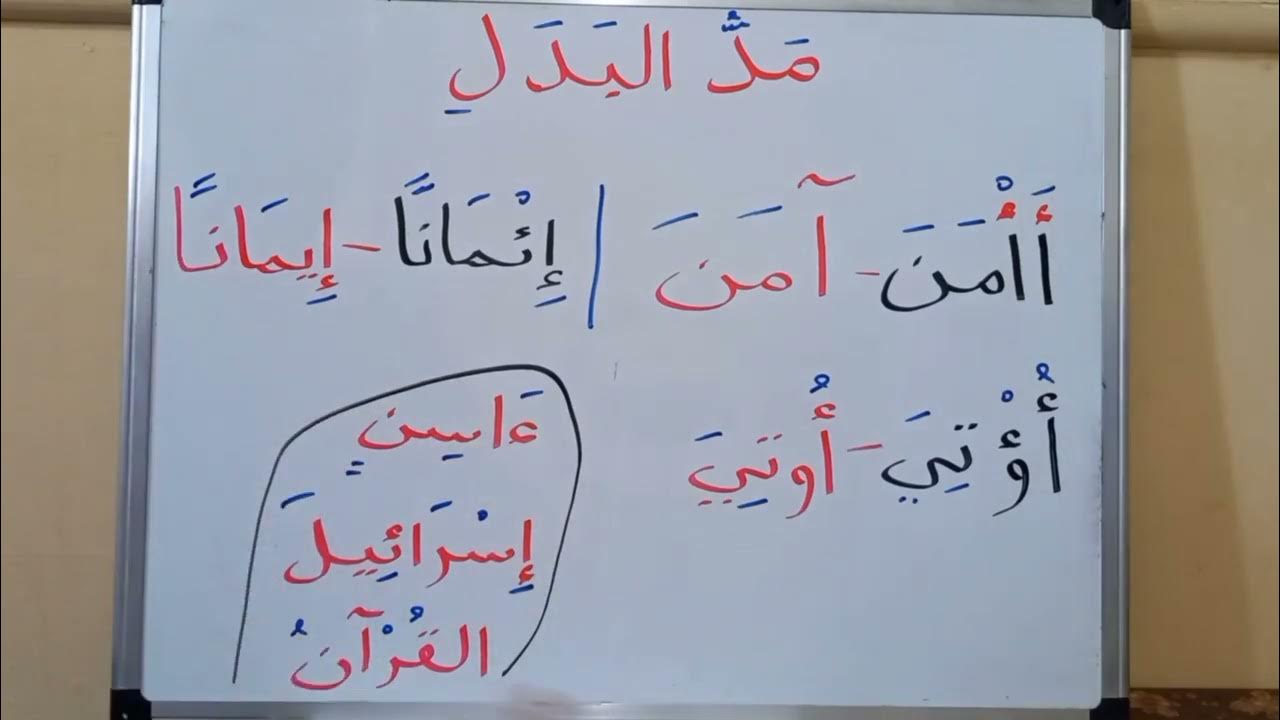 مَدُّ البَدَلِ
أَأْمَنَ - آمَنَ | إِئْمَانًا - إِيمَانًا
أُؤْتِيَ - أُوتِيَ
ءَاسِنٍ
إِسْرَائِيلَ
القُرْآنُ